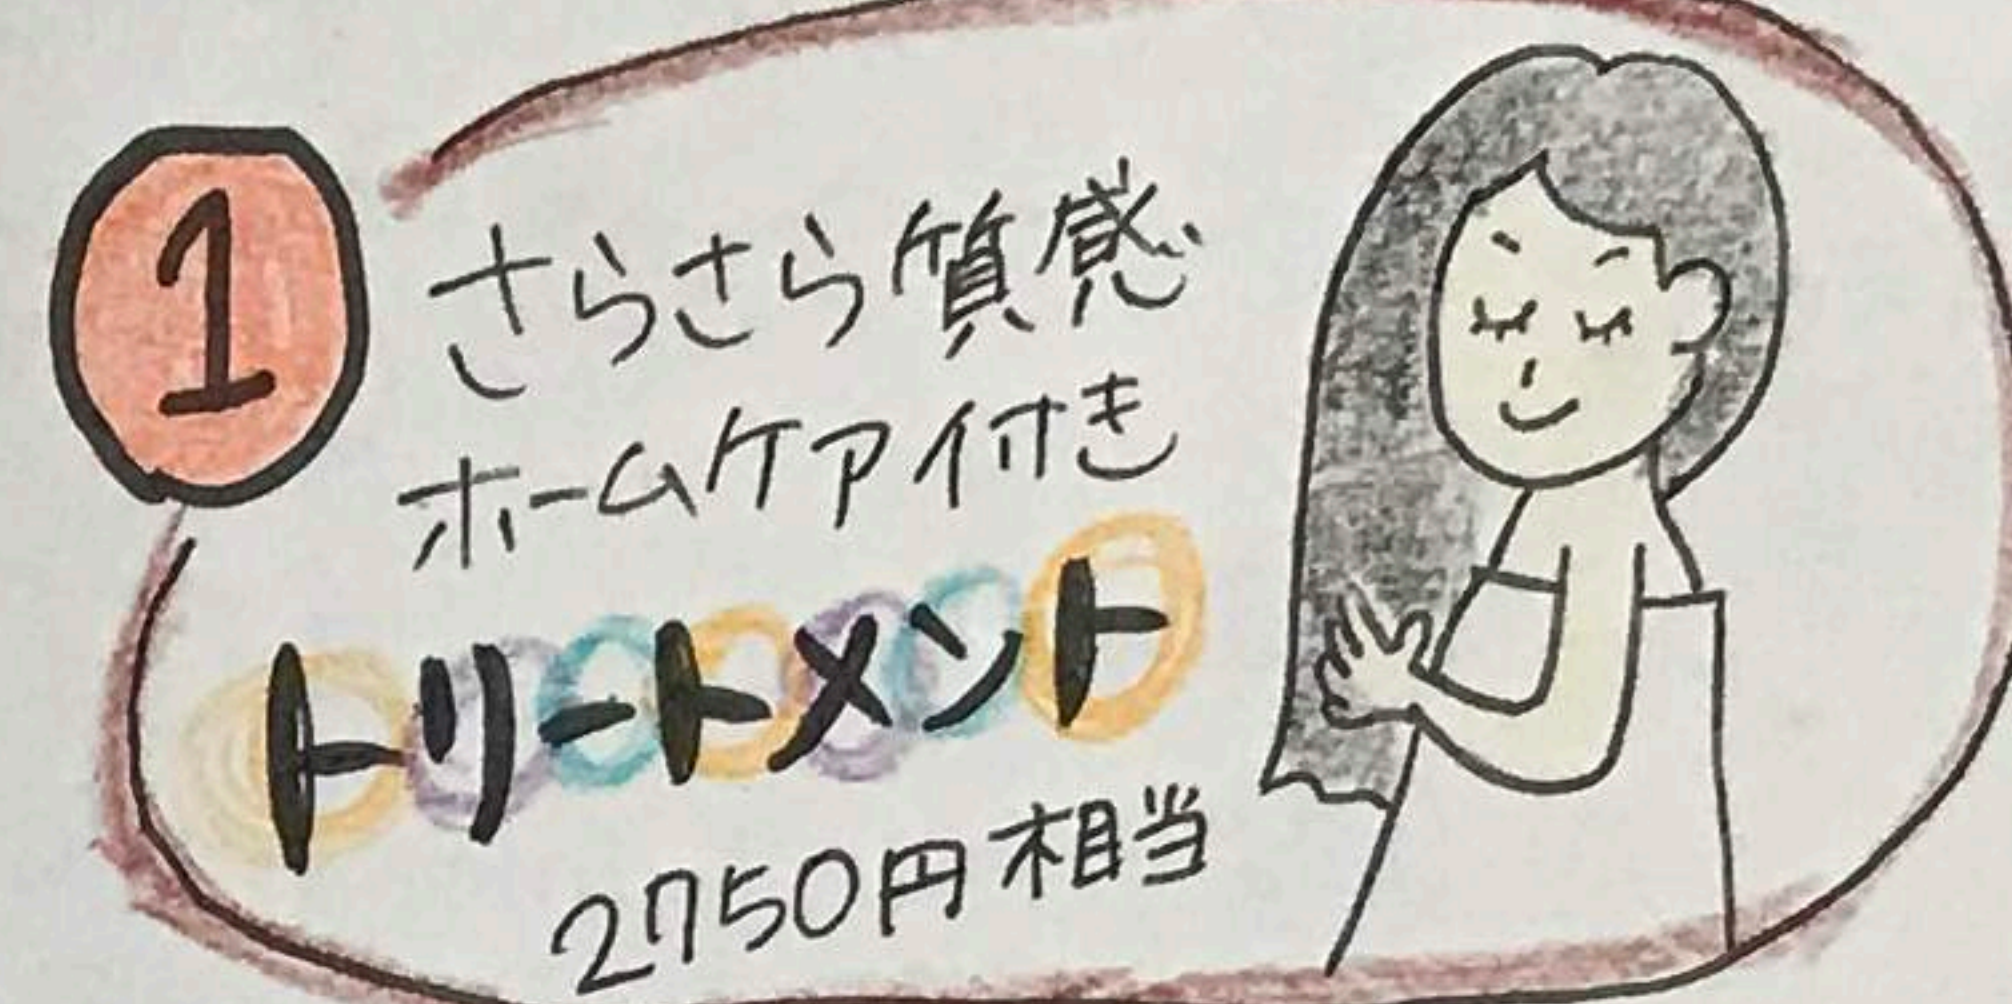 1
さらさら質感
ホームケア付き
トリートメント
2750円相当